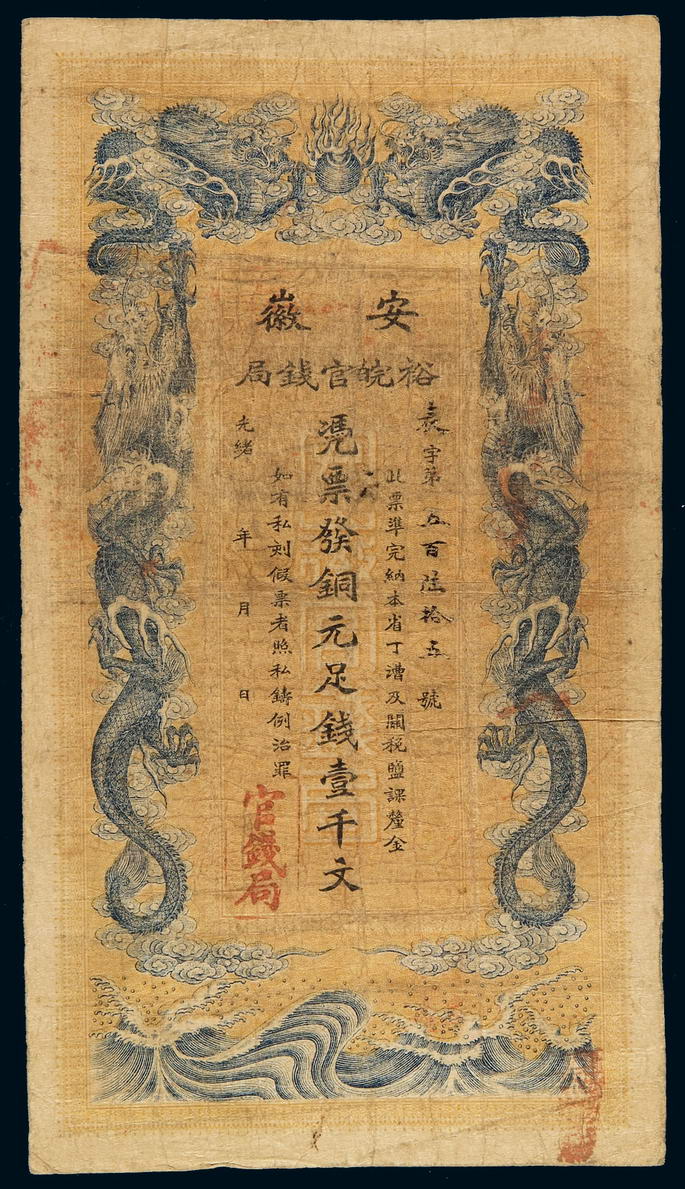 安徽
裕皖官錢局
袁字第五百陸拾五號
此票準完納本省丁漕及關稅鹽課釐金
憑票發銅元足錢壹千文
如有私刻假票者照私鑄例治罪
光緒 年 月 日
官錢局